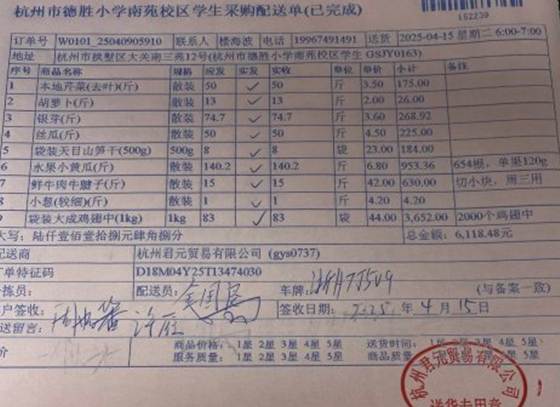 杭州市德胜小学南苑校区学生采购配送单(已完成)
152239
订单号 W0101_25040905910 联系人 楼海波 电话 19967491491 送货 2025-04-15 星期二 6:00-7:00
地址 杭州市拱墅区大关南三苑12号(杭州市德胜小学南苑校区学生 GSJY0163)
序号 商品名称 规格 应发 实发 实收 单位 单价 小计 备注
1 本地芹菜(去叶)(斤) 散装 50 ✓ 50 斤 3.50 175.00
2 胡萝卜(斤) 散装 13 ✓ 13 斤 2.00 26.00
3 银芽(斤) 散装 74.7 ✓ 74.7 斤 3.60 268.92
4 丝瓜(斤) 散装 50 ✓ 50 斤 4.50 225.00
5 袋装天目山笋干(500g) 500g 8 ✓ 8 袋 23.00 184.00
6 水果小黄瓜(斤) 散装 140.2 ✓ 140.2 斤 6.80 953.36 654根,单果120g
7 鲜牛肉牛腱子(斤) 散装 15 ✓ 15 斤 42.00 630.00 切小块,周三用
8 小葱(较细)(斤) 散装 1 ✓ 1 斤 4.20 4.20
9 袋装大成鸡翅中(1kg) 1kg 83 ✓ 83 袋 44.00 3,652.00 2000个鸡翅中
大写:陆仟壹佰壹拾捌元肆角捌分 总金额:6,118.48元
配送商 杭州君元贸易有限公司 (gys0737)
订单特征码 D18M04Y25T13474030
分拣员: 配送员: 车牌: (与备案一致)
客户签收: 签收日期: 2025 年 4 月 15 日
配送留言:
价 商品价格:1星 2星 3星 4星 5星 送货时间:1星 2星 3星 4星 5星
服务质量:1星 2星 3星 4星 5星 商品质量:1星 2星 3星 4星 5星
杭州君元贸易有限公司
送货专用章